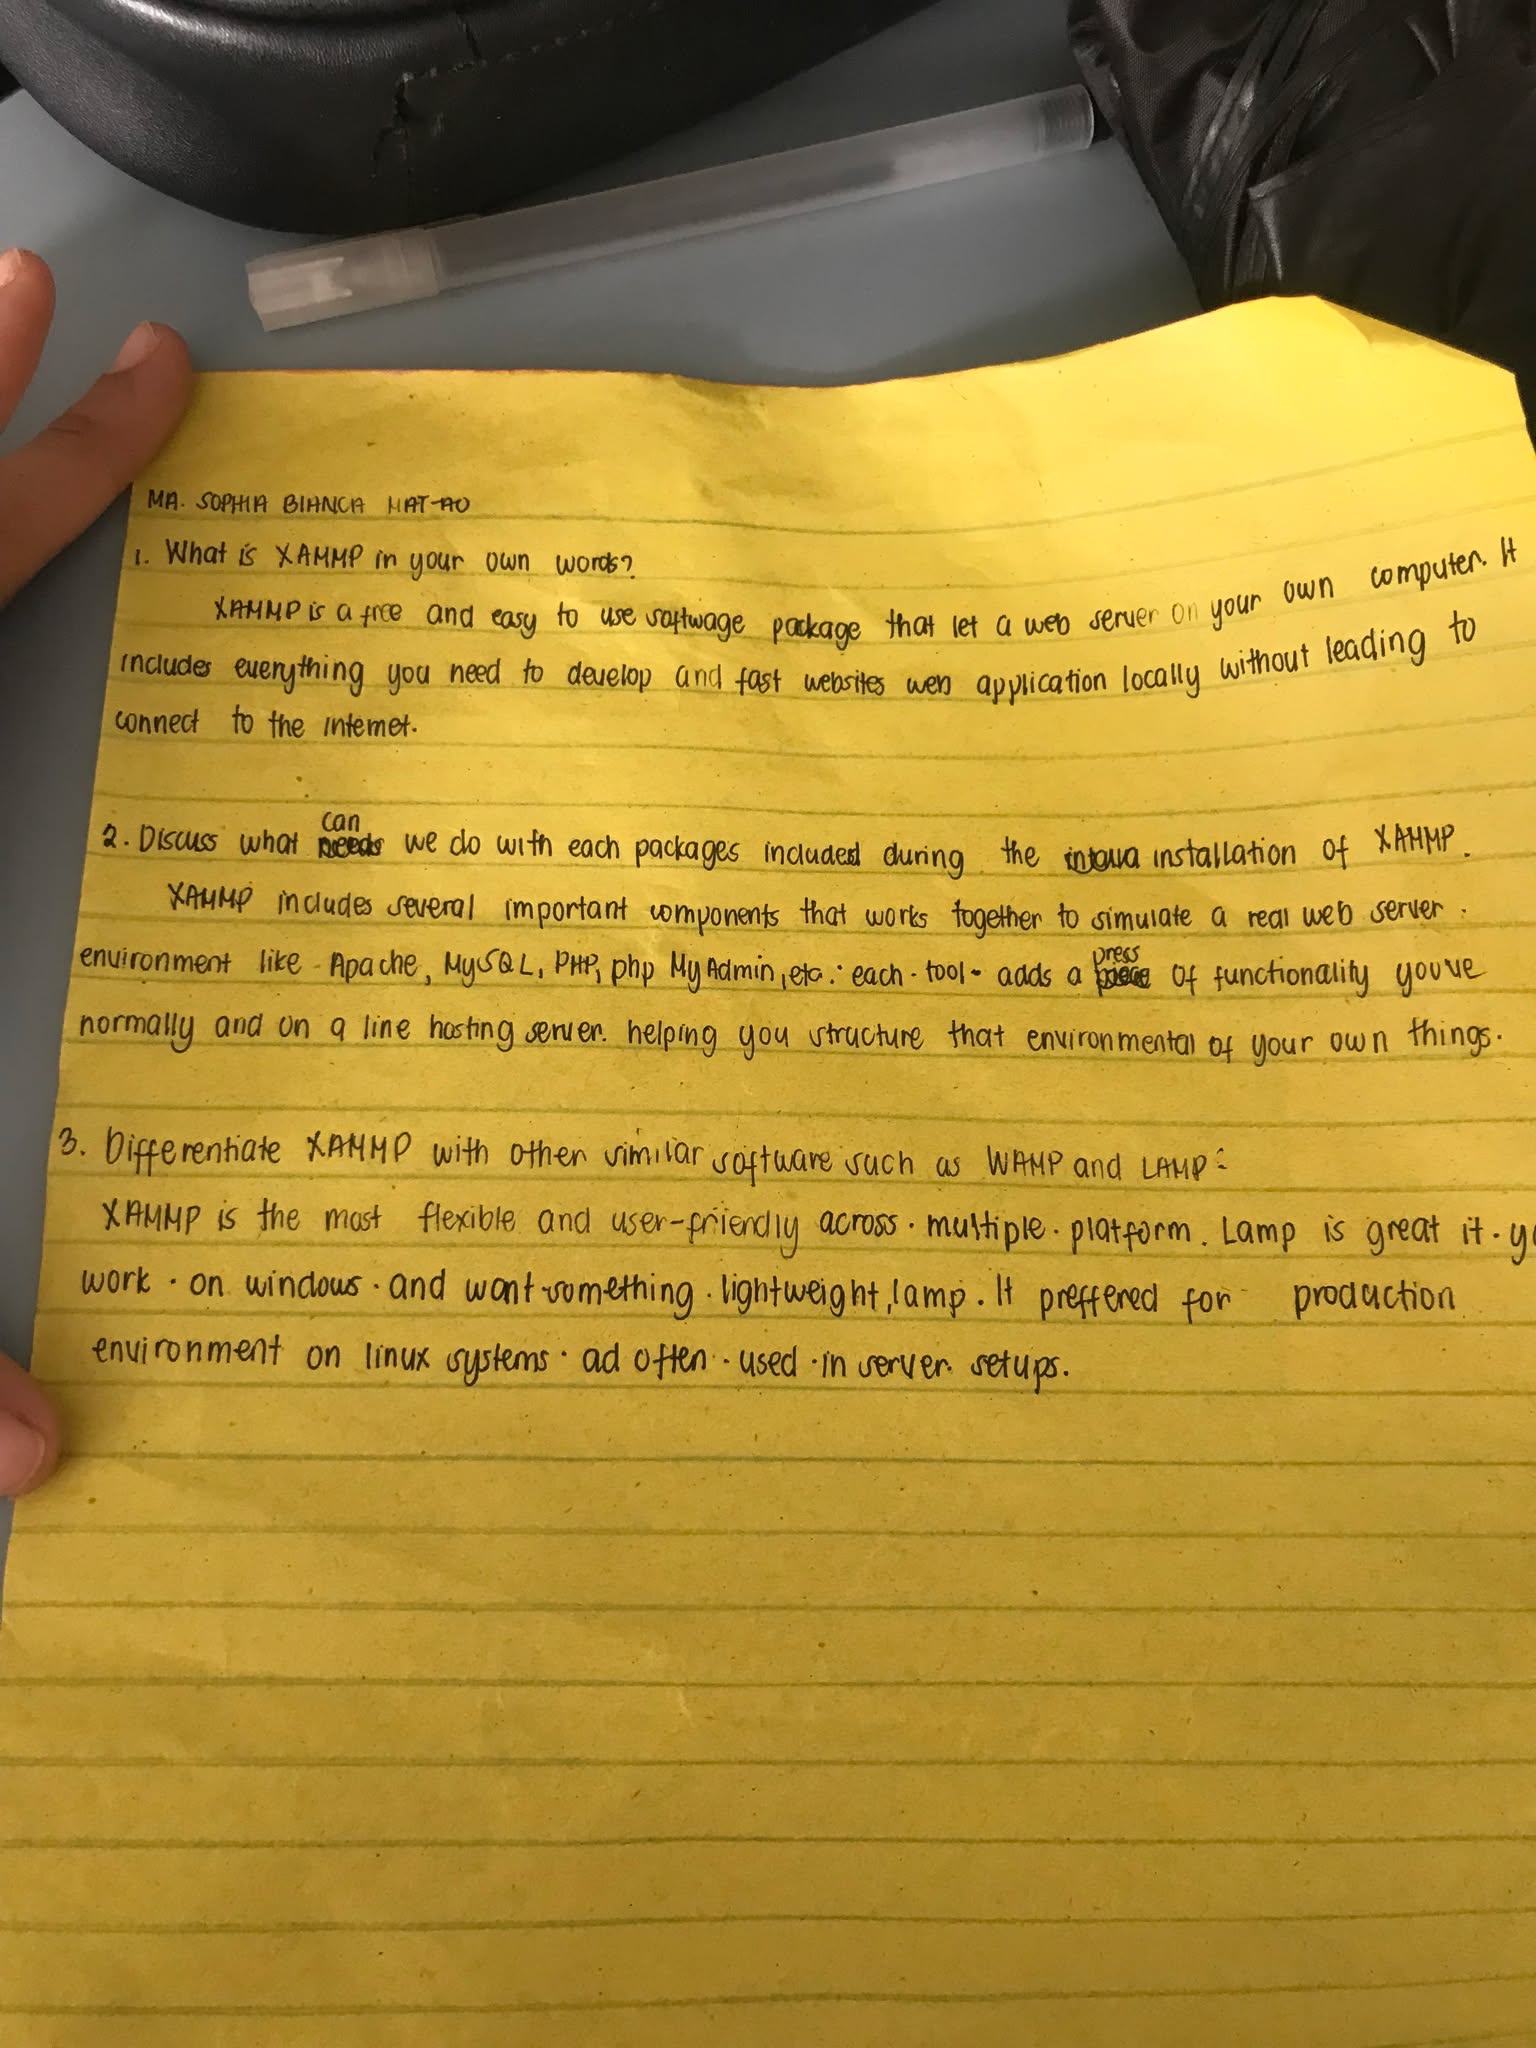 MA. SOPHIA BIANCA MAT-AO
1. What is XAMMP in your own words?
XAMMP is a free and easy to use softwage package that let a web server on your own computer. It
includes everything you need to develop and fast websites web application locally without leading to
connect to the internet.
2. Discuss what can we do with each packages included during the installation of XAMMP.
XAMMP includes several important components that works together to simulate a real web server.
environment like Apache, MySQL, PHP, php MyAdmin, etc. each tool adds a press of functionality youve
normally and on a line hosting server. helping you structure that environmental of your own things.
3. Differentiate XAMMP with other similar software such as WAMP and LAMP:
XAMMP is the most flexible and user-friendly across multiple platform. Lamp is great it
work on windows and want something lightweight, lamp. It preffered for production
environment on linux systems ad often used in server setups.